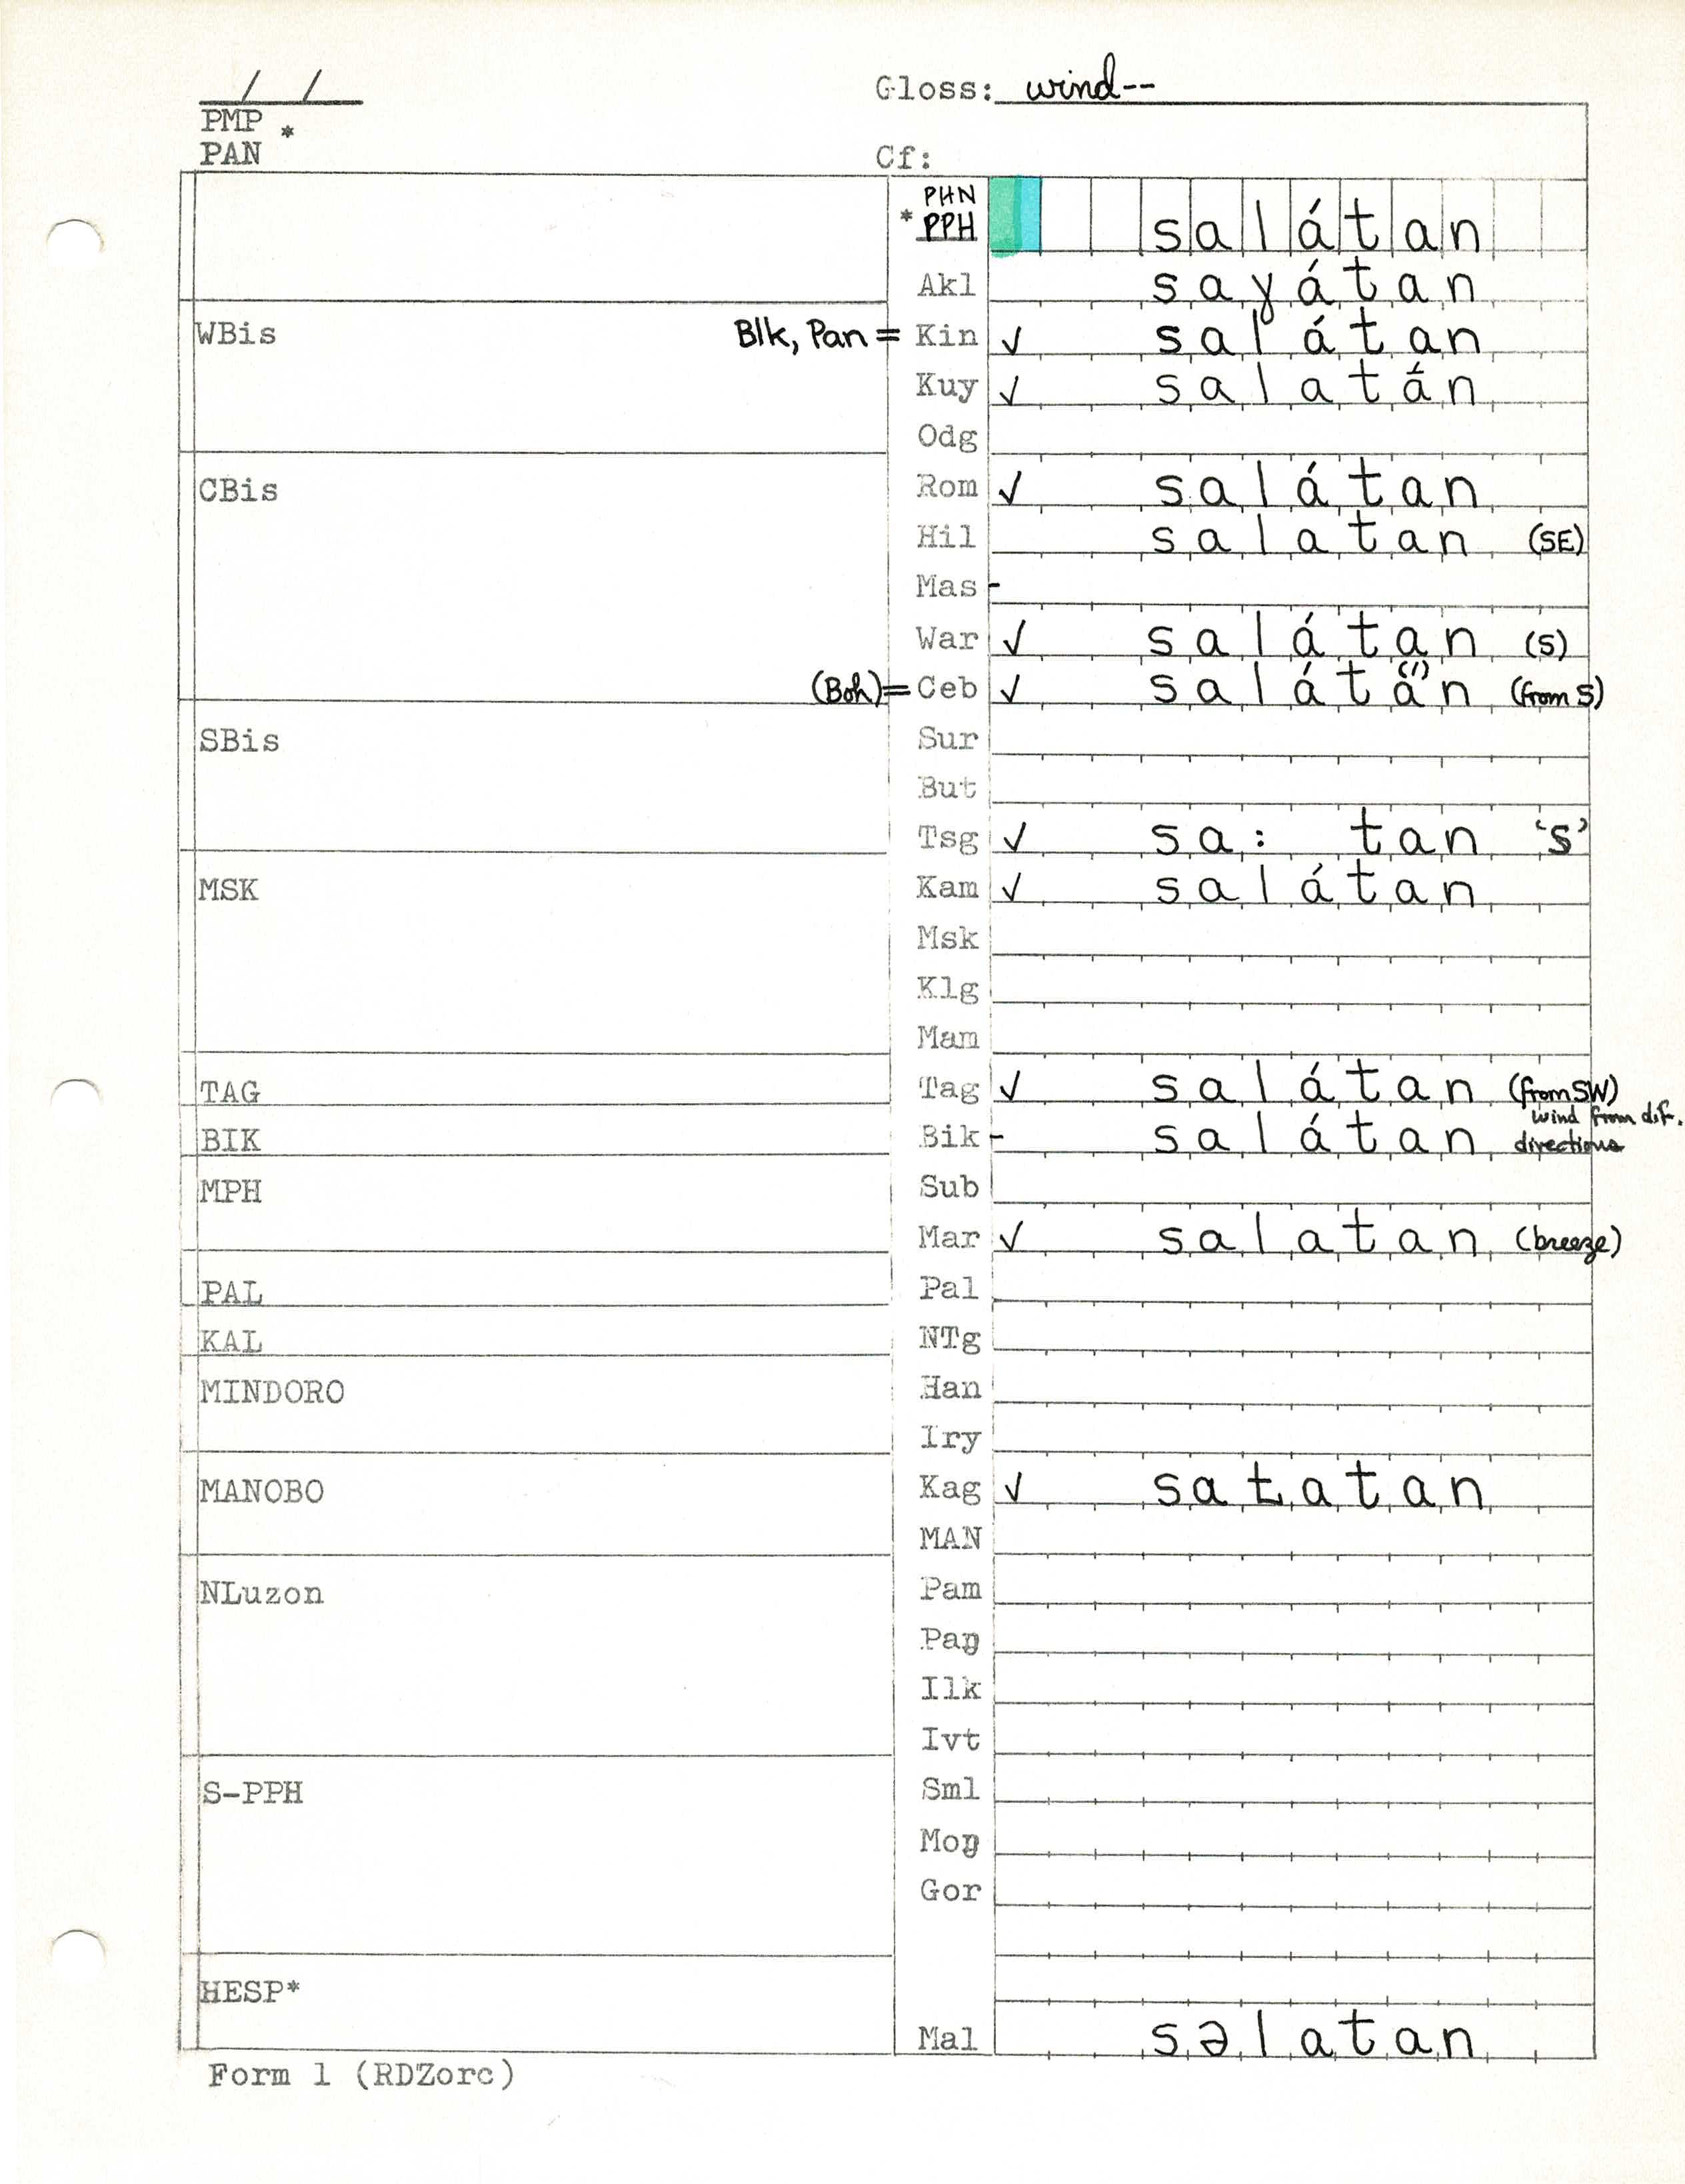 / /
Gloss: wind--
PMP *
PAN
Cf:
PHN
* PPH salátan
Akl sayátan
WBis Blk, Pan = Kin ✓ salátan
Kuy ✓ salatán
Odg
CBis Rom ✓ salátan
Hil salatan (SE)
Mas -
War ✓ salátan (S)
(Boh) = Ceb ✓ saláta(́)n (from S)
SBis Sur
But
Tsg ✓ sa: tan 'S'
MSK Kam ✓ salátan
Msk
Klg
Mam
TAG Tag ✓ salátan (from SW)
BIK Bik - salátan wind from dif.
directions
MPH Sub
Mar ✓ salatan (breeze)
PAL Pal
KAL NTg
MINDORO Han
Iry
MANOBO Kag ✓ satatan
MAN
NLuzon Pam
Paŋ
Ilk
Ivt
S-PPH Sml
Moŋ
Gor
HESP*
Mal səlatan
Form 1 (RDZorc)